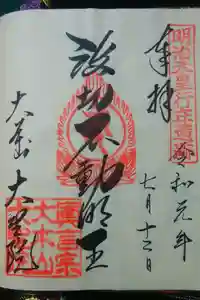 明治天皇行在遺蹟
奉拝
令和元年
七月十二日
波切不動明王
大本山
大聖院
眞言宗
大本山